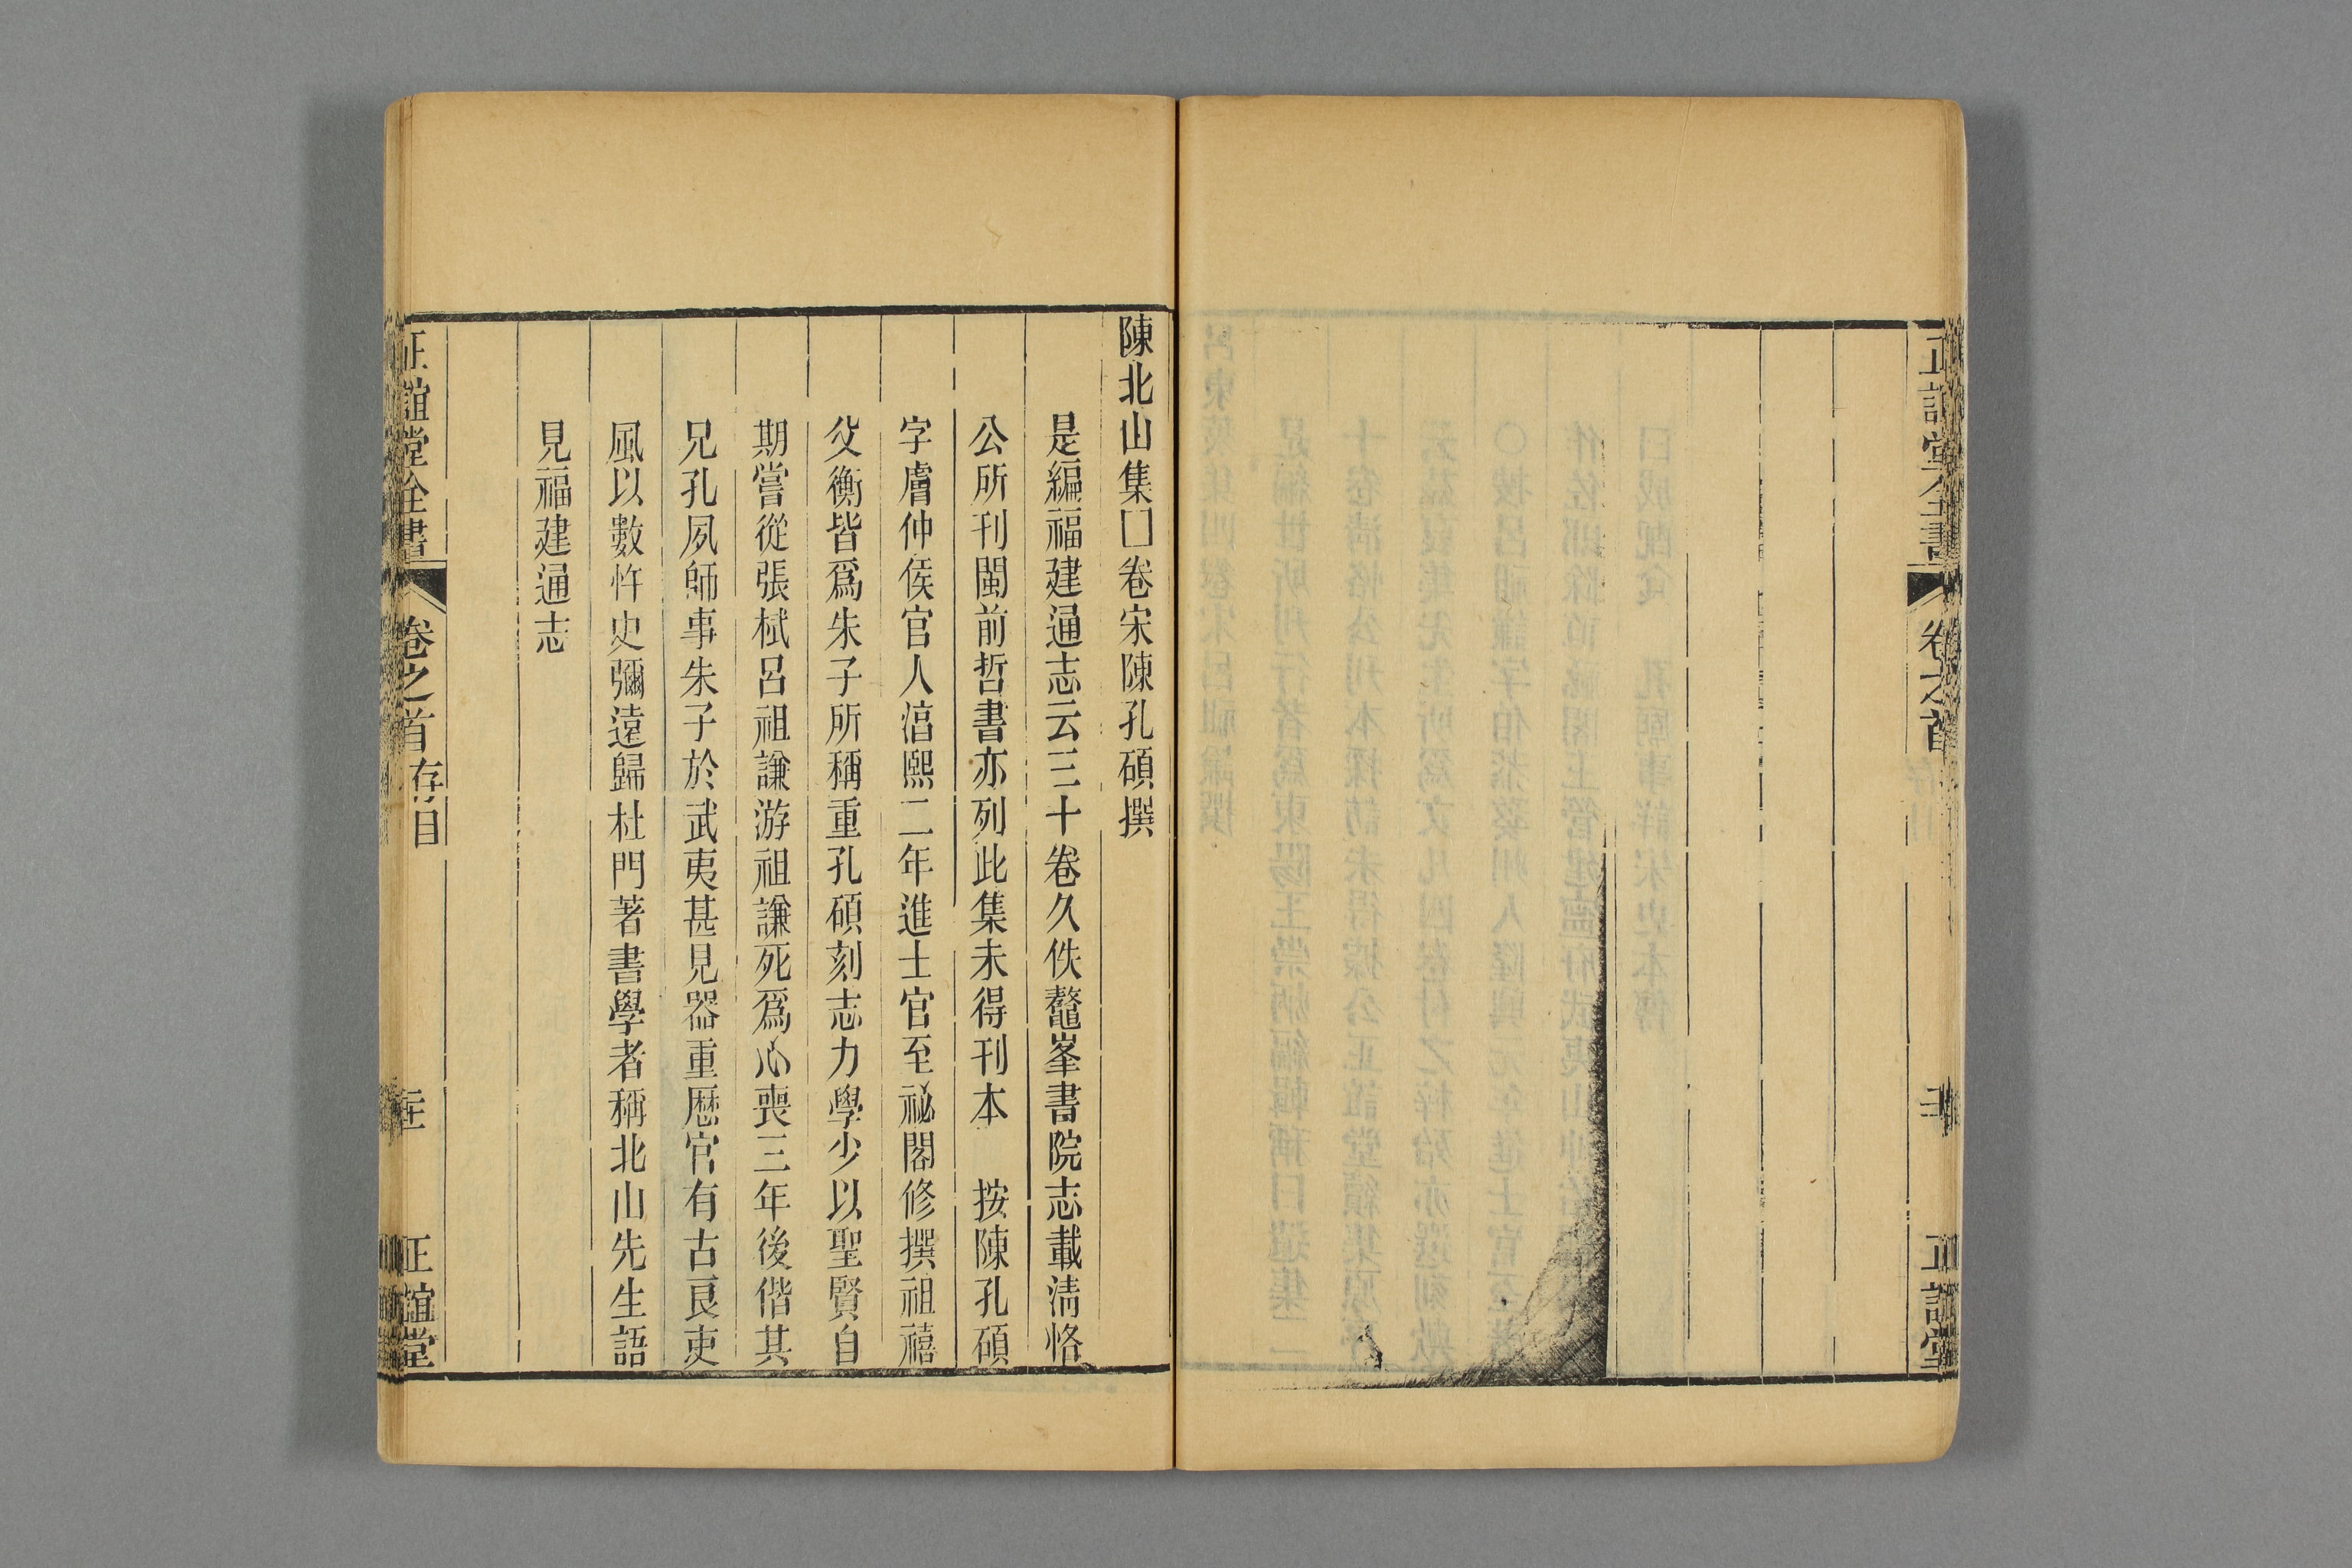 正誼堂全書
卷之首
正誼堂
陳北山集□卷宋陳孔碩撰
是編福建通志云三十卷久佚鼇峯書院志載清恪
公所刊閩前哲書亦列此集未得刊本　按陳孔碩
字膚仲侯官人湻熙二年進士官至祕閣修撰祖禧
父衡皆爲朱子所稱重孔碩刻志力學少以聖賢自
期嘗從張栻呂祖謙游祖謙死爲心喪三年後偕其
兄孔夙師事朱子於武夷甚見器重歷官有古良吏
風以數忤史彌遠歸杜門著書學者稱北山先生語
見福建通志
正誼堂全書
卷之首
存目
正誼堂